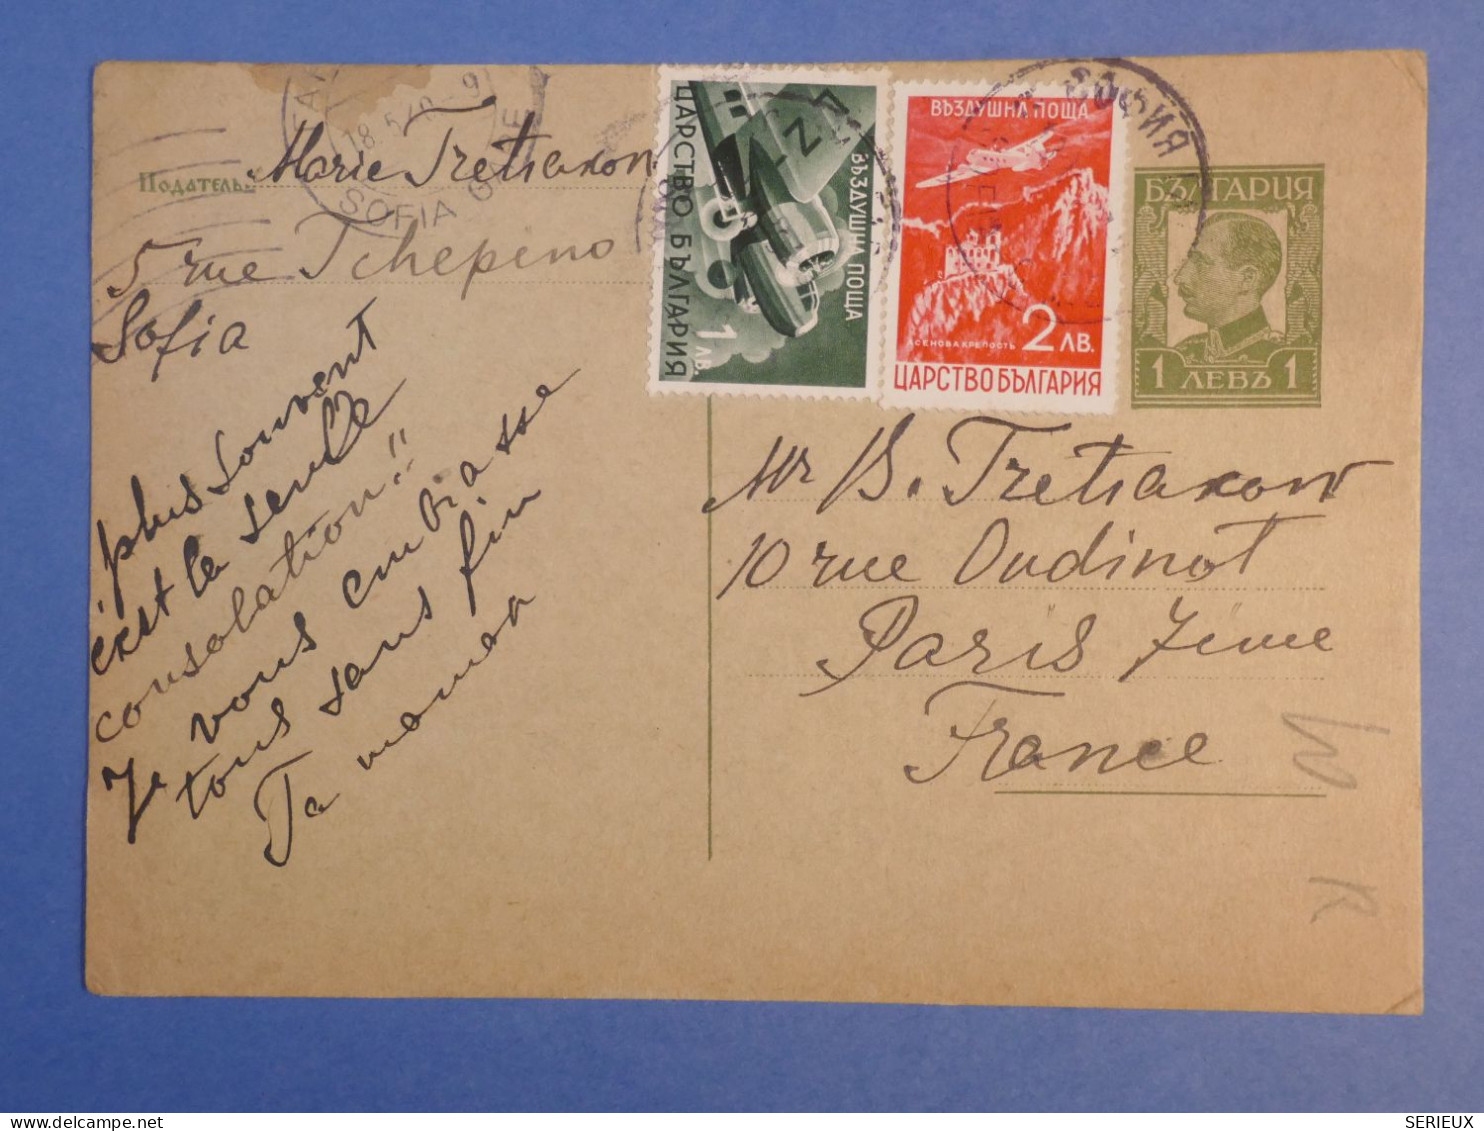 Подателъ
Marie Tretiakow
5 rue Tchepino
Sofia
18.5.40-9
SOFIA GARE
ВЪЗДУШНА ПОЩА
1 ЛВ.
ЦАРСТВО БЪЛГАРИЯ
ВЪЗДУШНА ПОЩА
АСЕНОВА КРЕПОСТЬ
2 ЛВ.
ЦАРСТВО БЪЛГАРИЯ
СОФИЯ
БЪЛГАРИЯ
1 ЛЕВЪ 1
plus souvent
c'est la seule
consolation!!
Je vous embrasse
tous sans fin
Ta maman
Mr B. Tretiakow
10 rue Oudinot
Paris 7ème
France
SERIEUX
www.delcampe.net